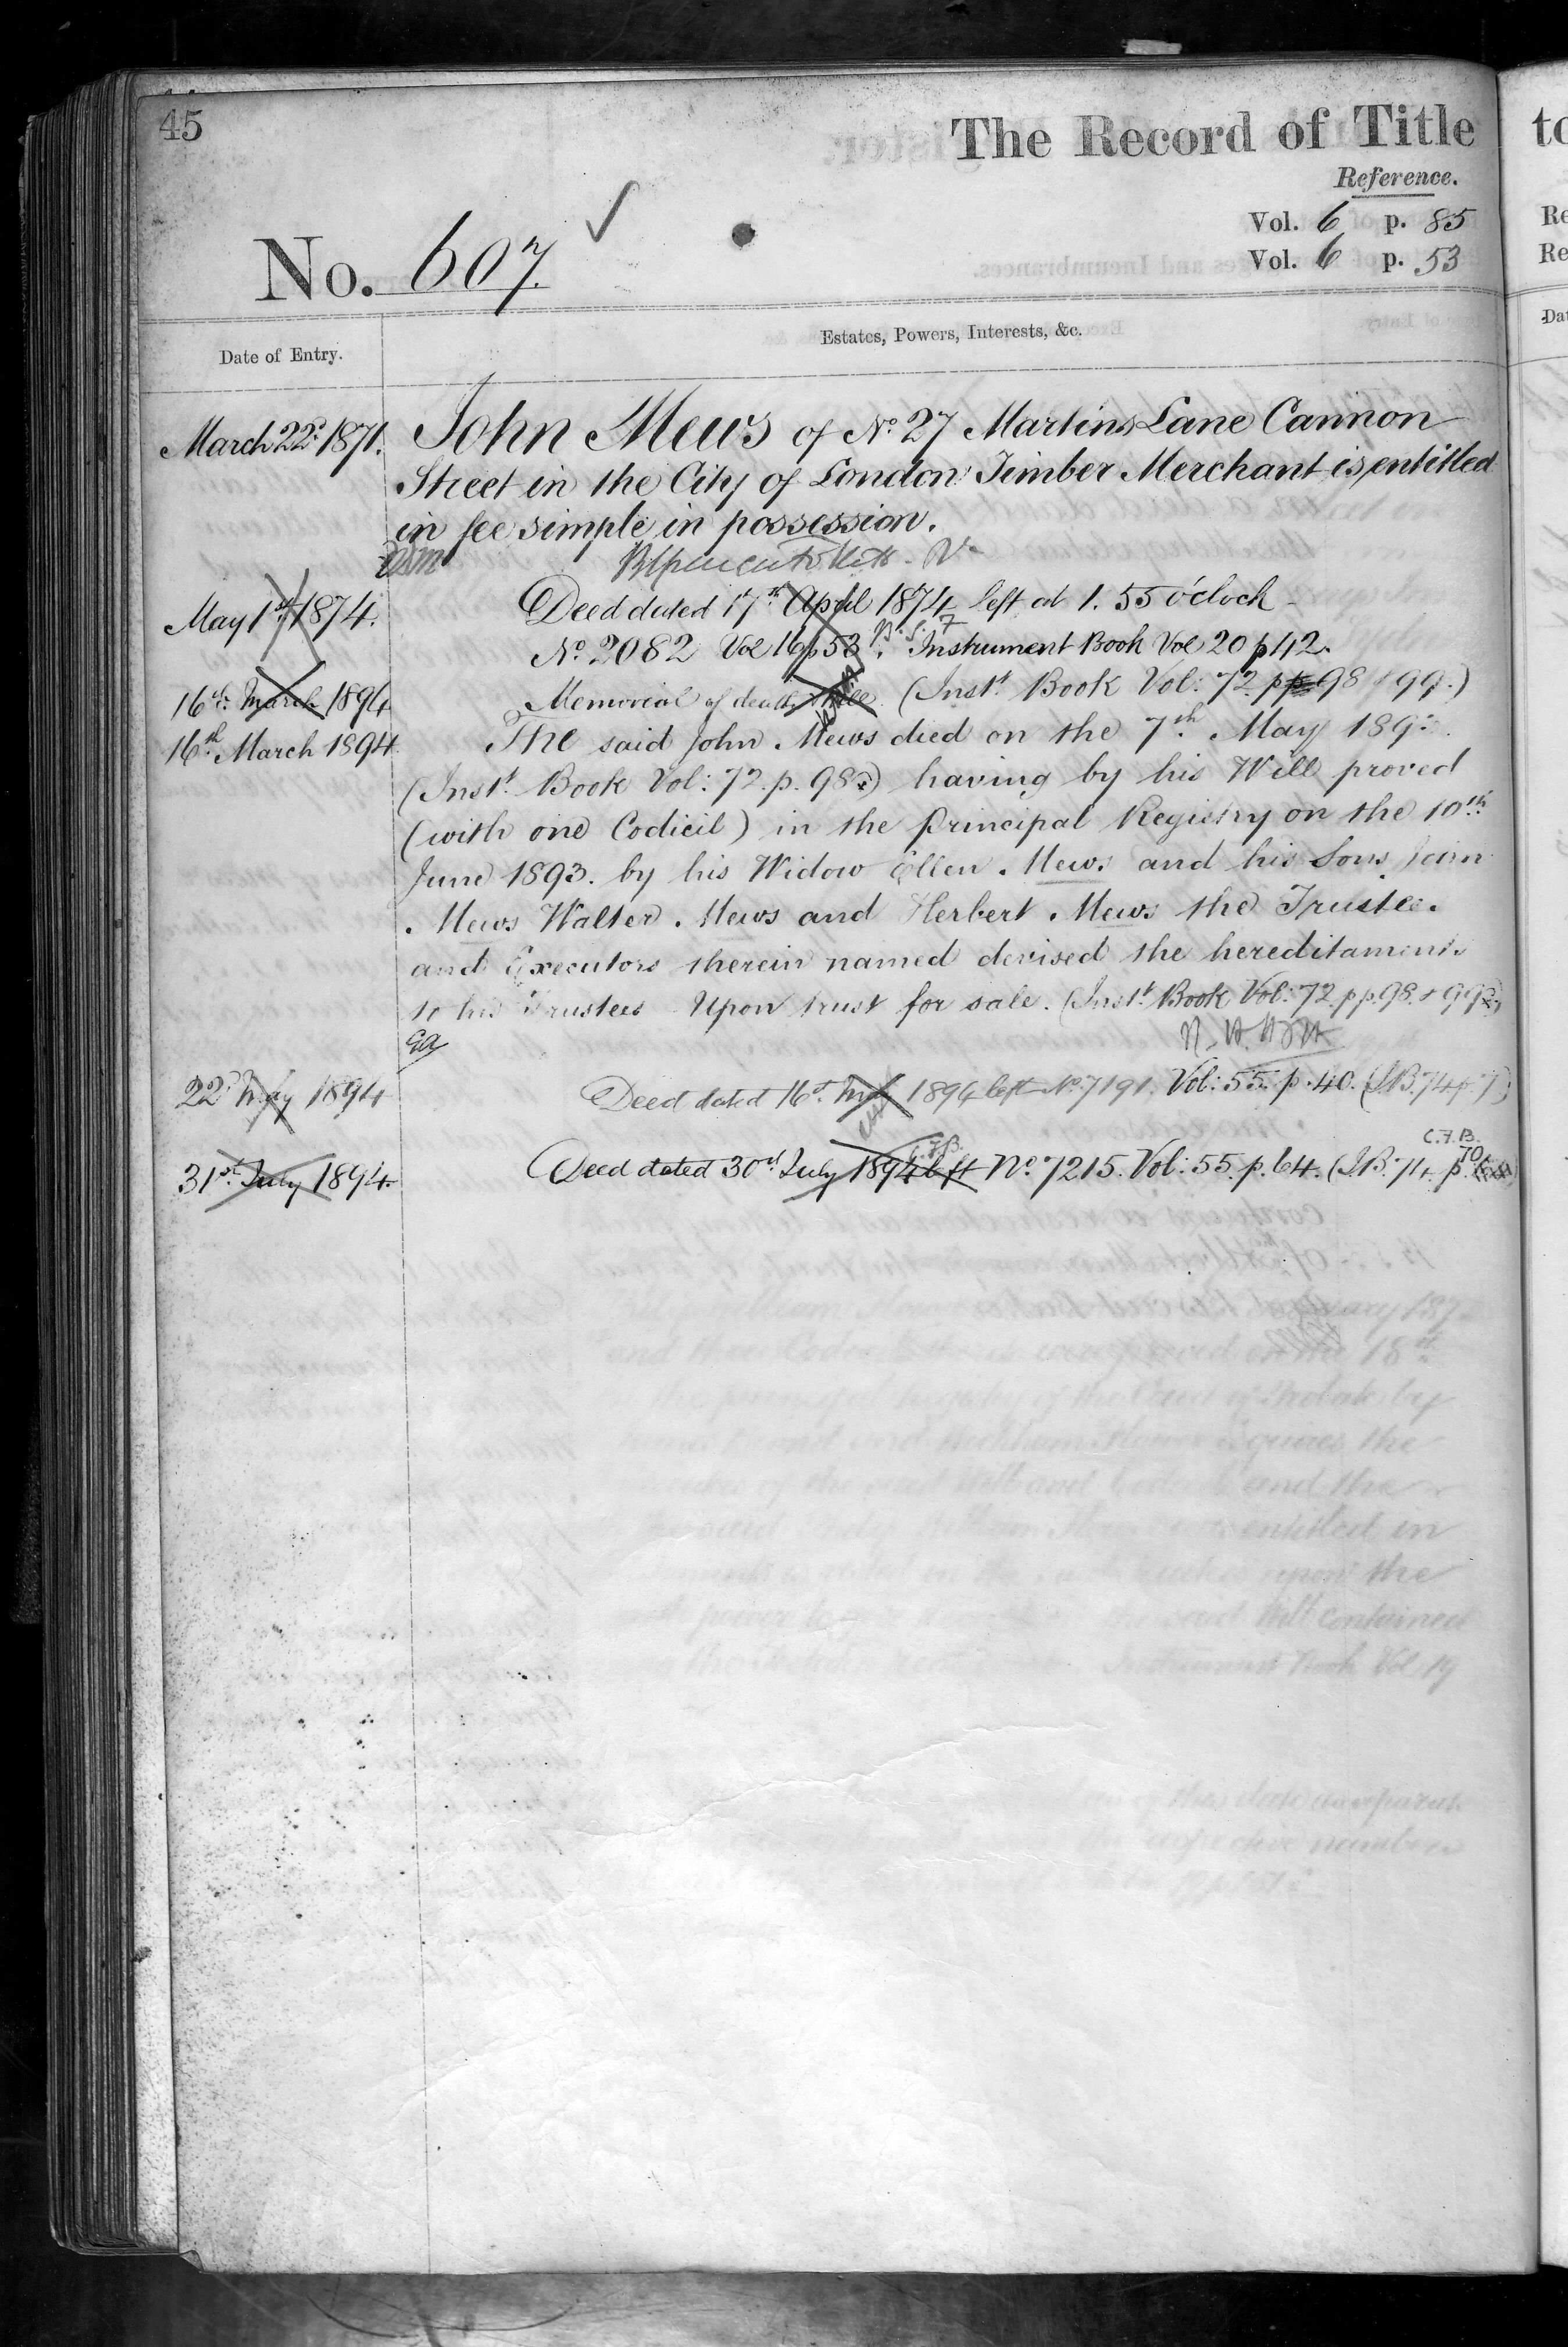 45
The Record of Title
Reference.
Vol. 6 p. 85
Vol. 6 p. 53
No. 607.
Date of Entry.
Estates, Powers, Interests, &c.
March 22d. 1871. John Mews of No. 27 Martins Lane Cannon
Street in the City of London Timber Merchant is entitled
in fee simple in possession.
May 1st. 1874. Deed dated 17th. April 1874 left at 1.55 o'clock
No. 2082 Vol 16 p 53. Instrument Book Vol 20 p 42.
16th. March 1894 Memorial of death (Inst. Book Vol: 72 pp 98 & 99.)
16th. March 1894. The said John Mews died on the 7th. May 189
(Inst. Book Vol: 72. p. 98) having by his Will proved
(with one Codicil) in the Principal Registry on the 10th.
June 1893. by his Widow Ellen Mews and his Sons John
Mews Walter Mews and Herbert Mews the Trustees
and Executors therein named devised the hereditaments
to his Trustees Upon trust for sale. (Inst. Book Vol: 72. pp. 98. & 99)
22d. May 1894 Deed dated 16th. May 1894 left No. 7191. Vol: 55. p. 40. (I.B. 74 p. 7)
C.F.B.
31st. July 1894. Deed dated 30th. July 1894 left No. 7215. Vol: 55. p. 64. (I.B. 74. p. 70